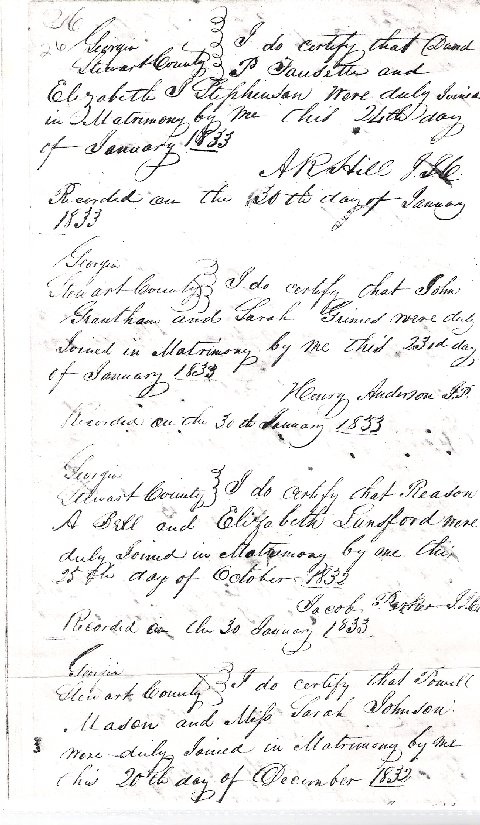 26
Georgia I do certify that David
Stewart County P and
Elizabeth J Stephenson were duly Joined
in Matrimony by me this 24th day
of January 1833
A R Hill
Recorded on the 30th day of January
1833
Georgia
Stewart County I do certify that John
Grantham and Sarah Grimes were duly
Joined in Matrimony by me this 23rd day
of January 1833
Henry Anderson J.P.
Recorded on the 30th January 1833
Georgia
Stewart County I do certify that Reason
A Bell and Elizabeth Lunsford were
duly Joined in Matrimony by me this
25th day of October 1832
Jacob Parker
Recorded on the 30 January 1833
Georgia
Stewart County I do certify that Powell
Mason and Miss Sarah Johnson
were duly Joined in Matrimony by me
this 20th day of December 1832